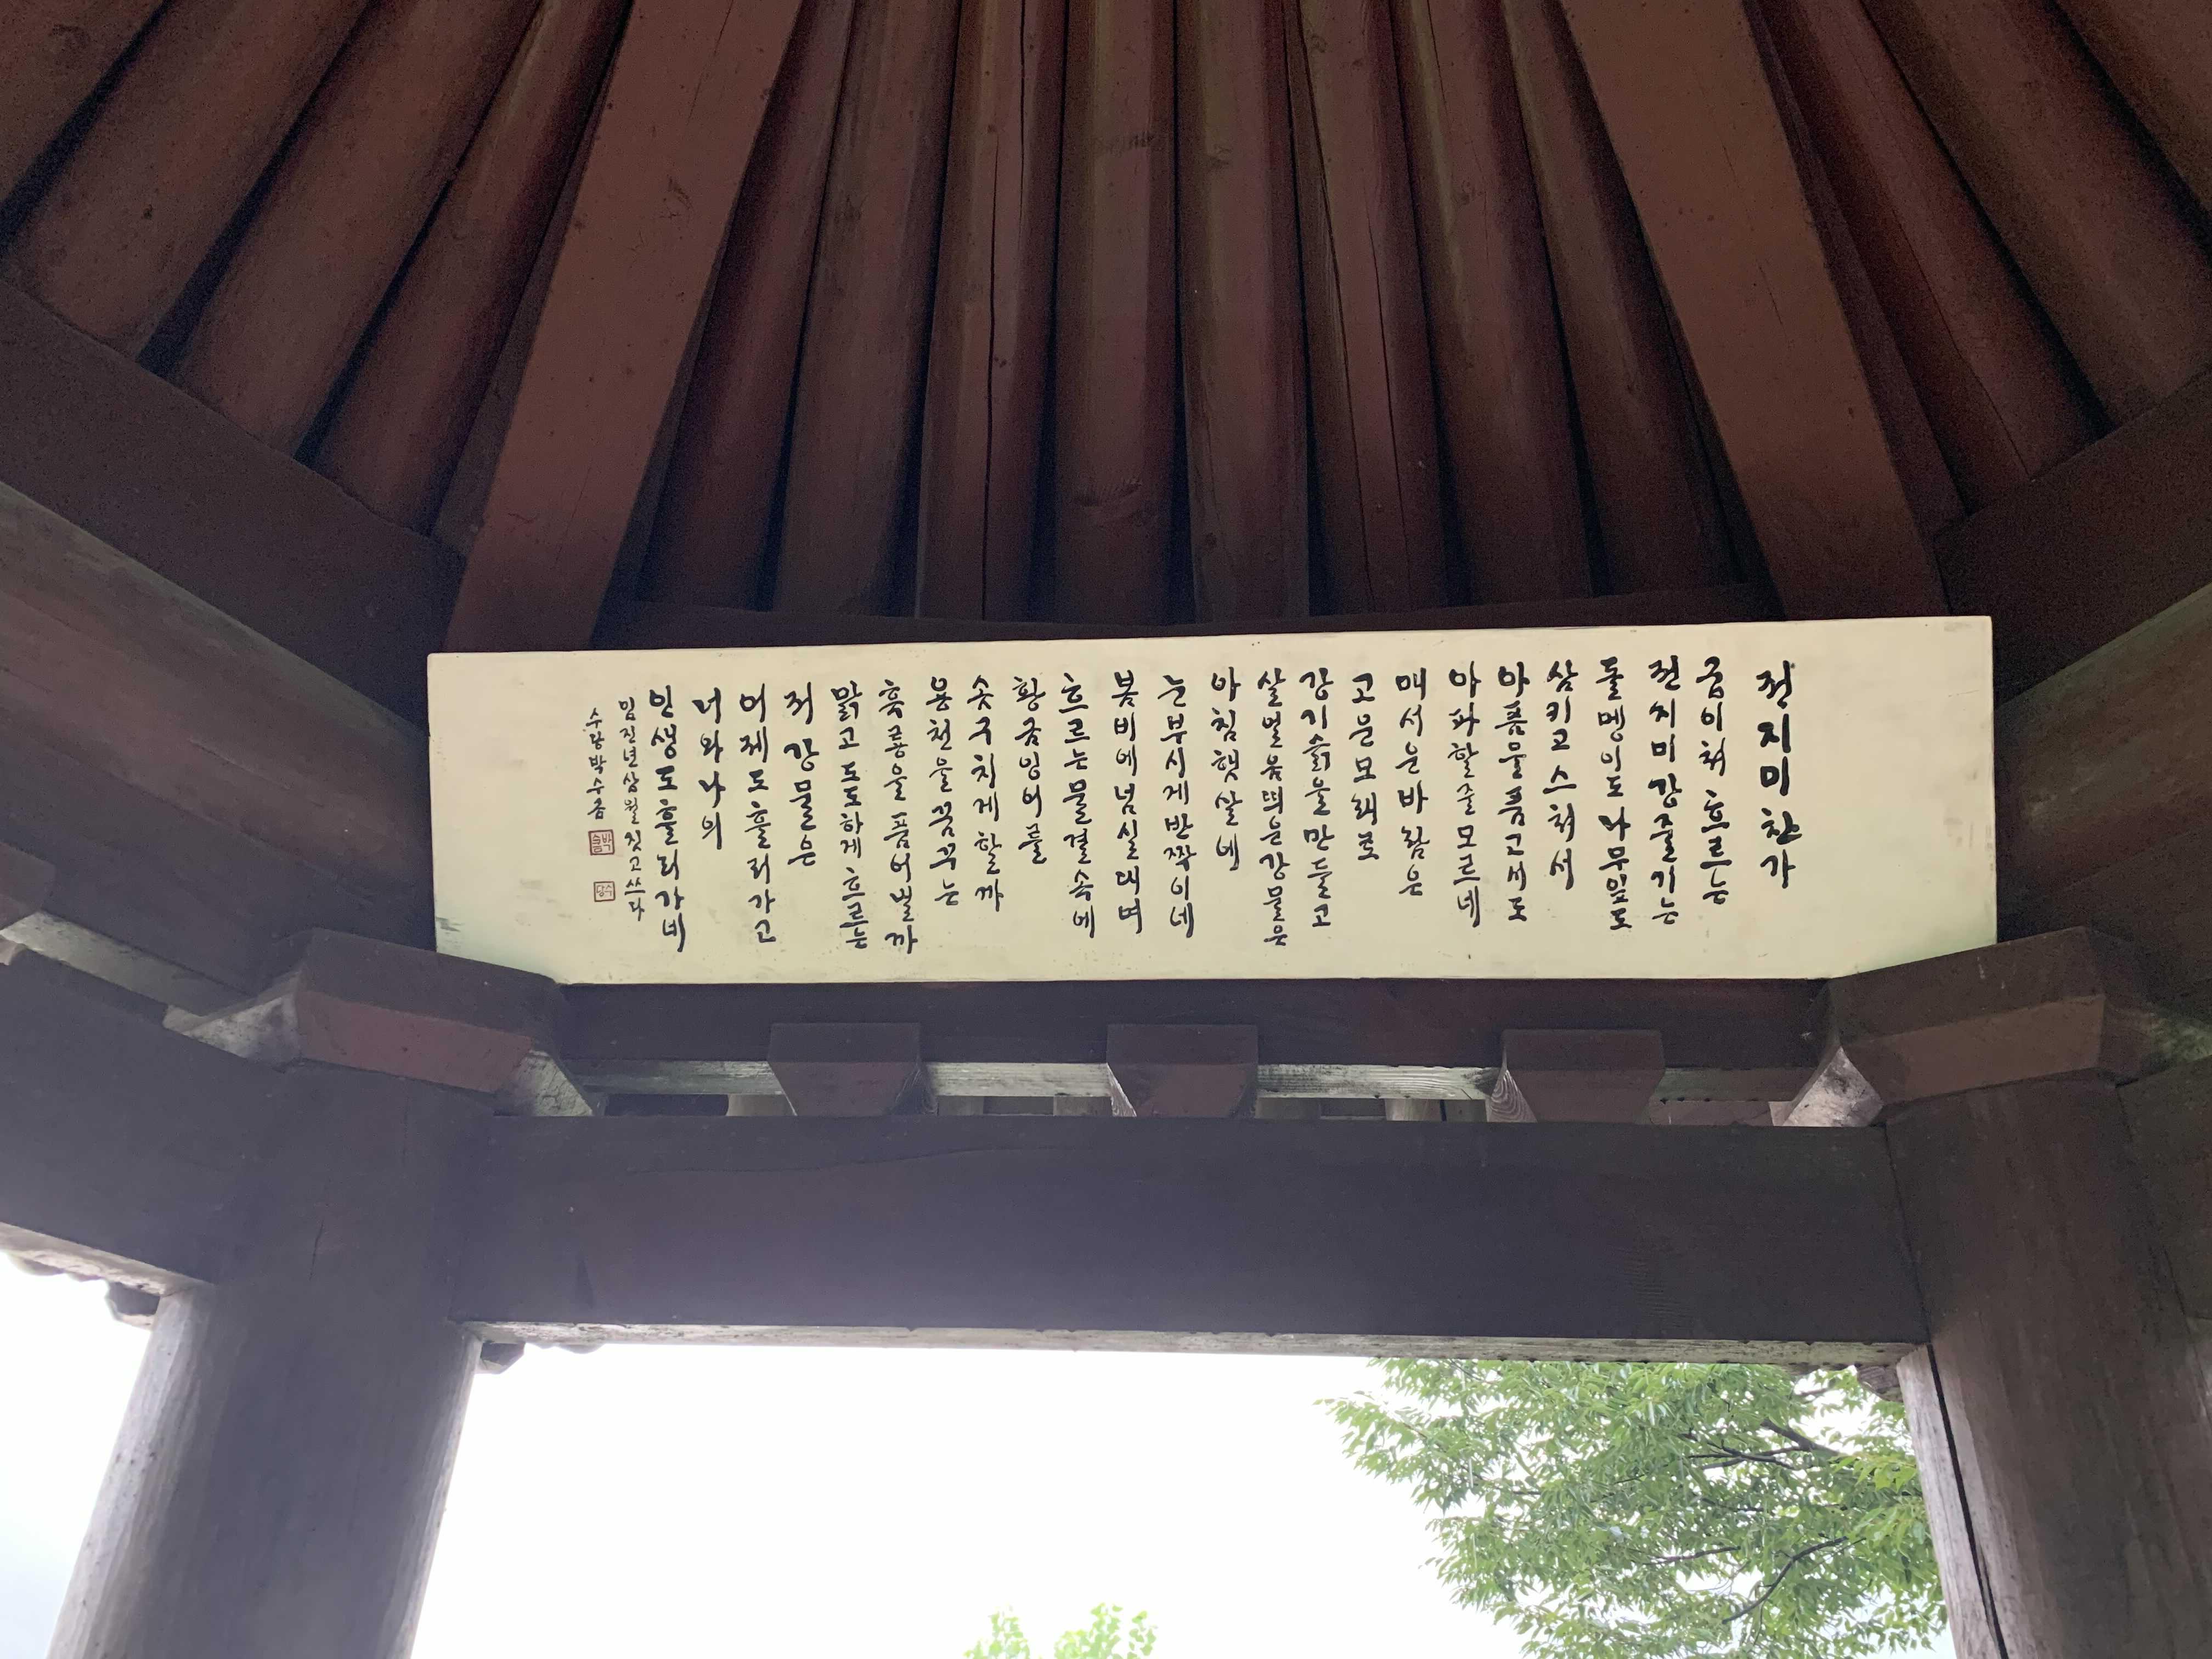 전지미찬가
굽이쳐흐르는
전지미강줄기는
돌멩이도나무잎도
삼키고스쳐서
아픔을품고서도
아파할줄모르네
매서운바람은
고운모래로
강기슭을만들고
살얼음띄운강물은
아침햇살에
눈부시게반짝이네
봄비에넘실대며
흐르는물결속에
황금잉어를
솟구치게할까
용천을꿈꾸는
흑룡을품어낼까
맑고도도하게흐르는
저강물은
어제도흘러가고
너와나의
인생도흘러가네
임진년상월짓고쓰다
수당박수금